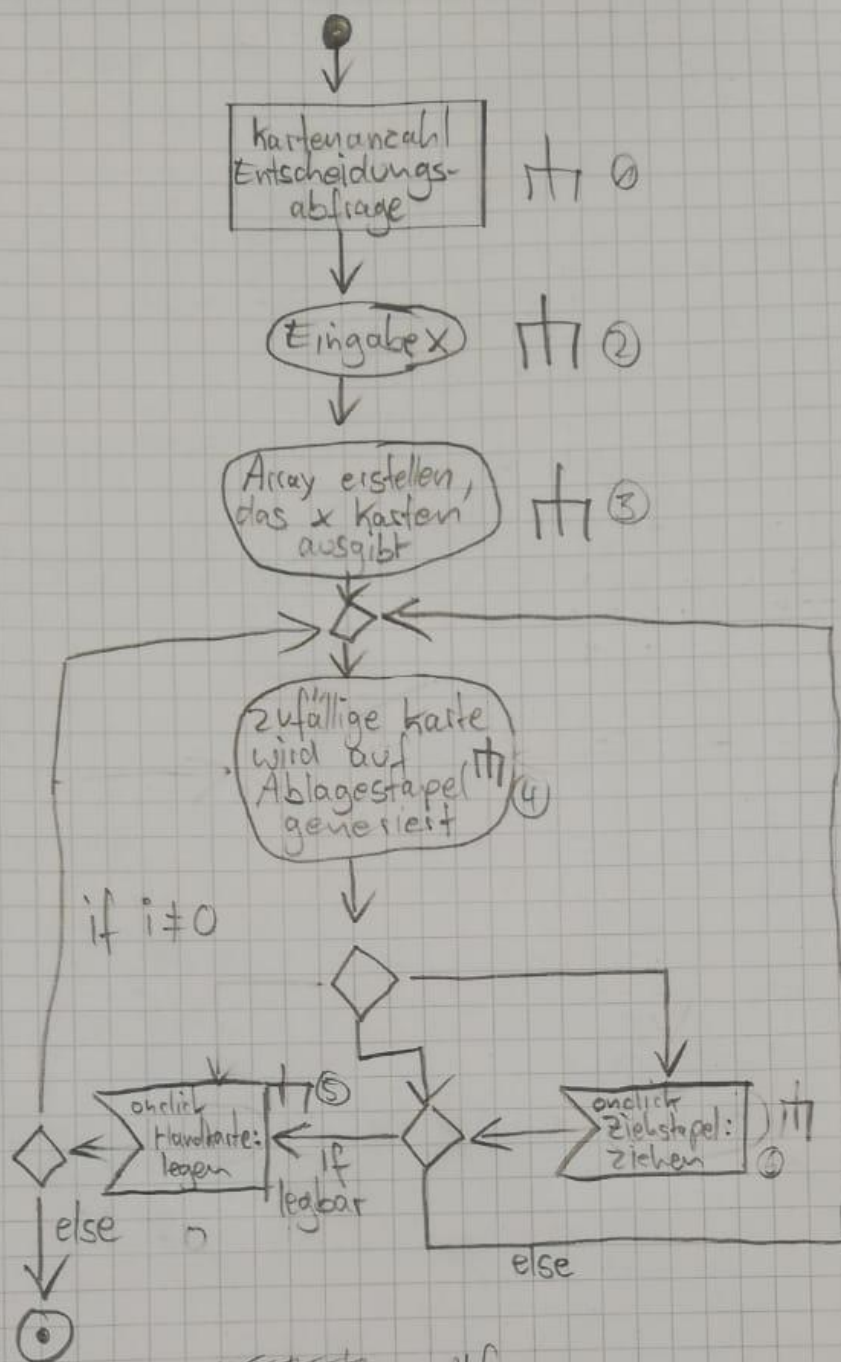 Kartenanzahl
Entscheidungs-
abfrage
Eingabe x
②
Array erstellen,
das x Karten
ausgibt
③
zufällige Karte
wird auf
Ablagestapel
generiert
④
if i ≠ 0
onclick
Handkarte:
legen
⑤
if
legbar
onclick
Ziehstapel:
ziehen
else
else